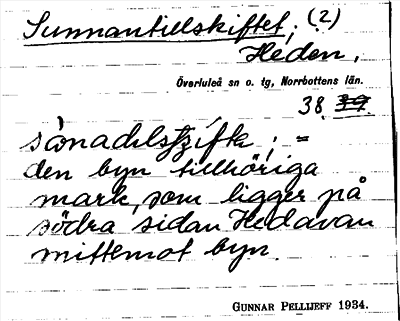 Sunnantillskiftet; (2)
Heden,
Överluleå sn o. tg, Norrbottens län.
38. 39.
den byn tillhöriga
mark, som ligger på
södra sidan Hedavan
mittemot byn.
GUNNAR PELLIJEFF 1934.